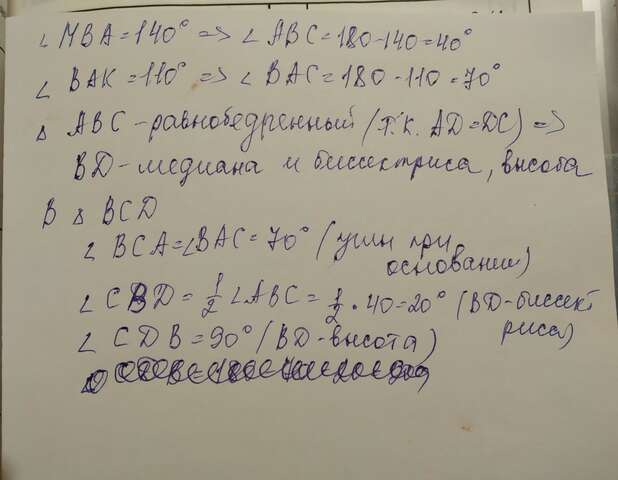 ∠ MBA = 140° => ∠ ABC = 180-140 = 40°
∠ BAK = 110° => ∠ BAC = 180 - 110 = 70°
Δ ABC - равнобедренный (т.к. AD = DC) =>
BD - медиана и биссектриса, высота
В Δ BCD
∠ BCA = ∠BAC = 70° (углы при
основании)
∠ CBD = 1/2 ∠ABC = 1/2 · 40 = 20° (BD - биссект
риса)
∠ CDB = 90° (BD - высота)